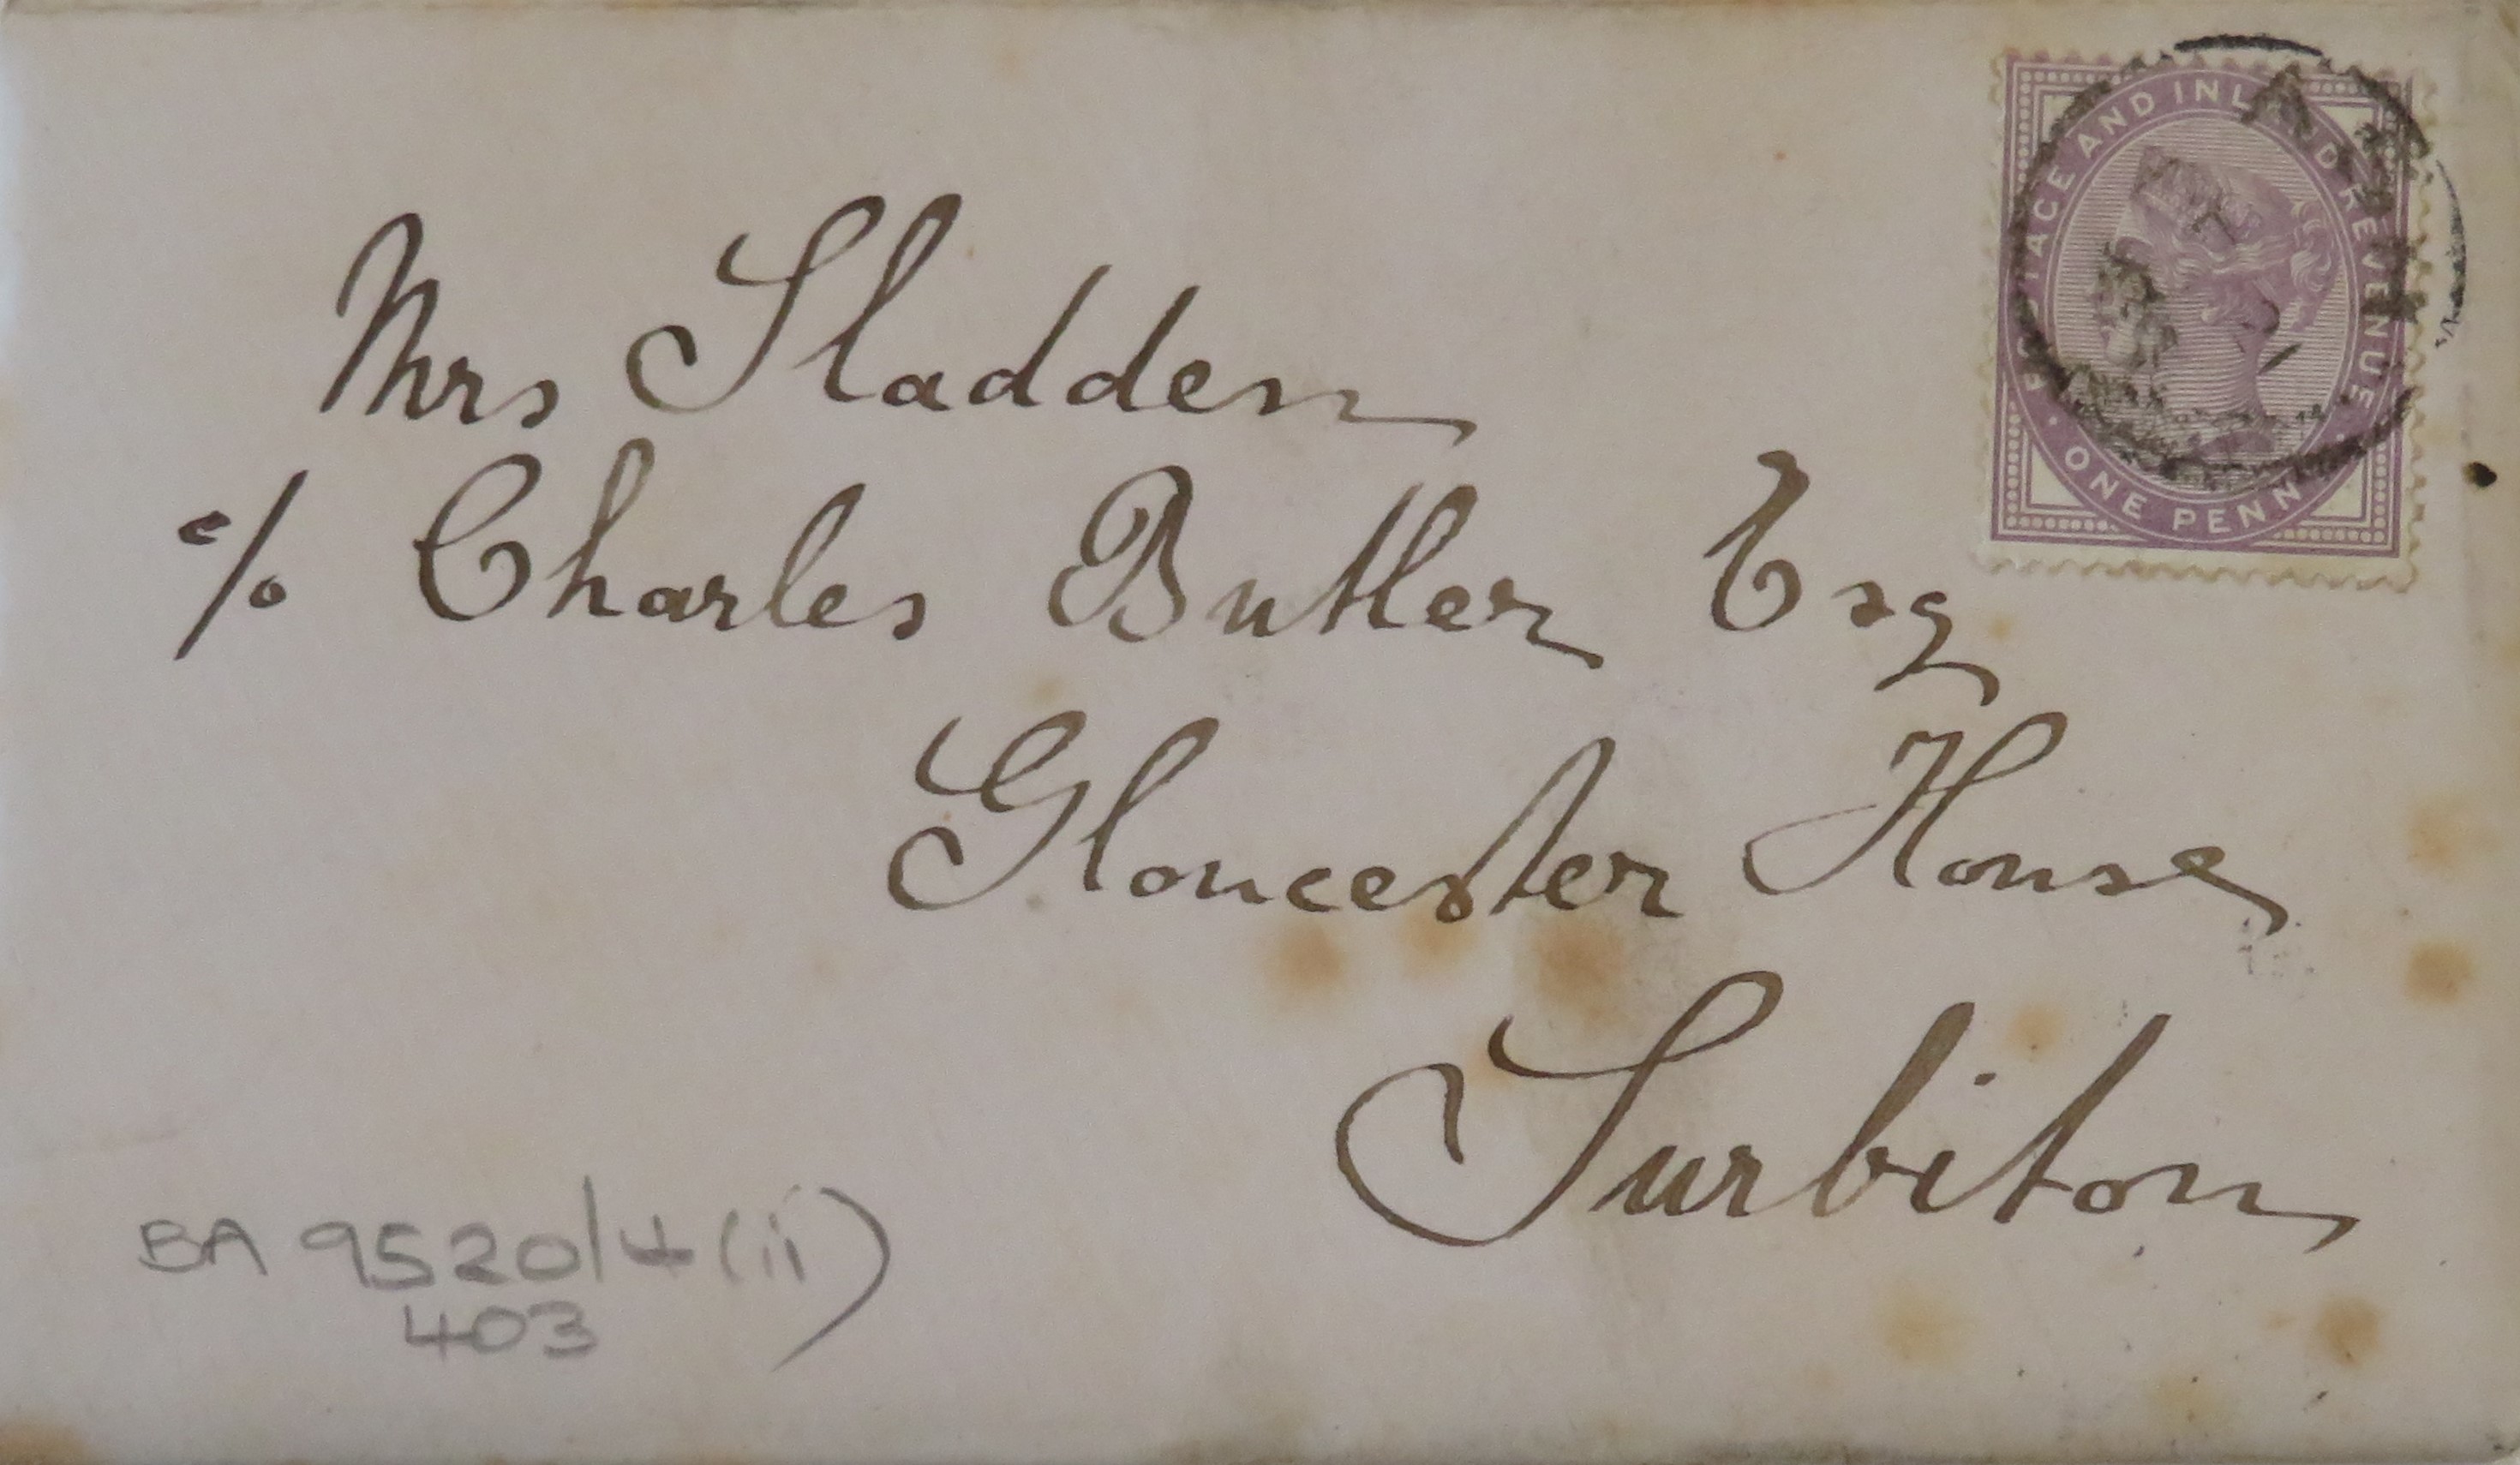 POSTAGE AND INLAND REVENUE
ONE PENNY
Mrs Sladden
c/o Charles Butler Esq
Gloucester House
Surbiton
BA 9520/4(ii)
403